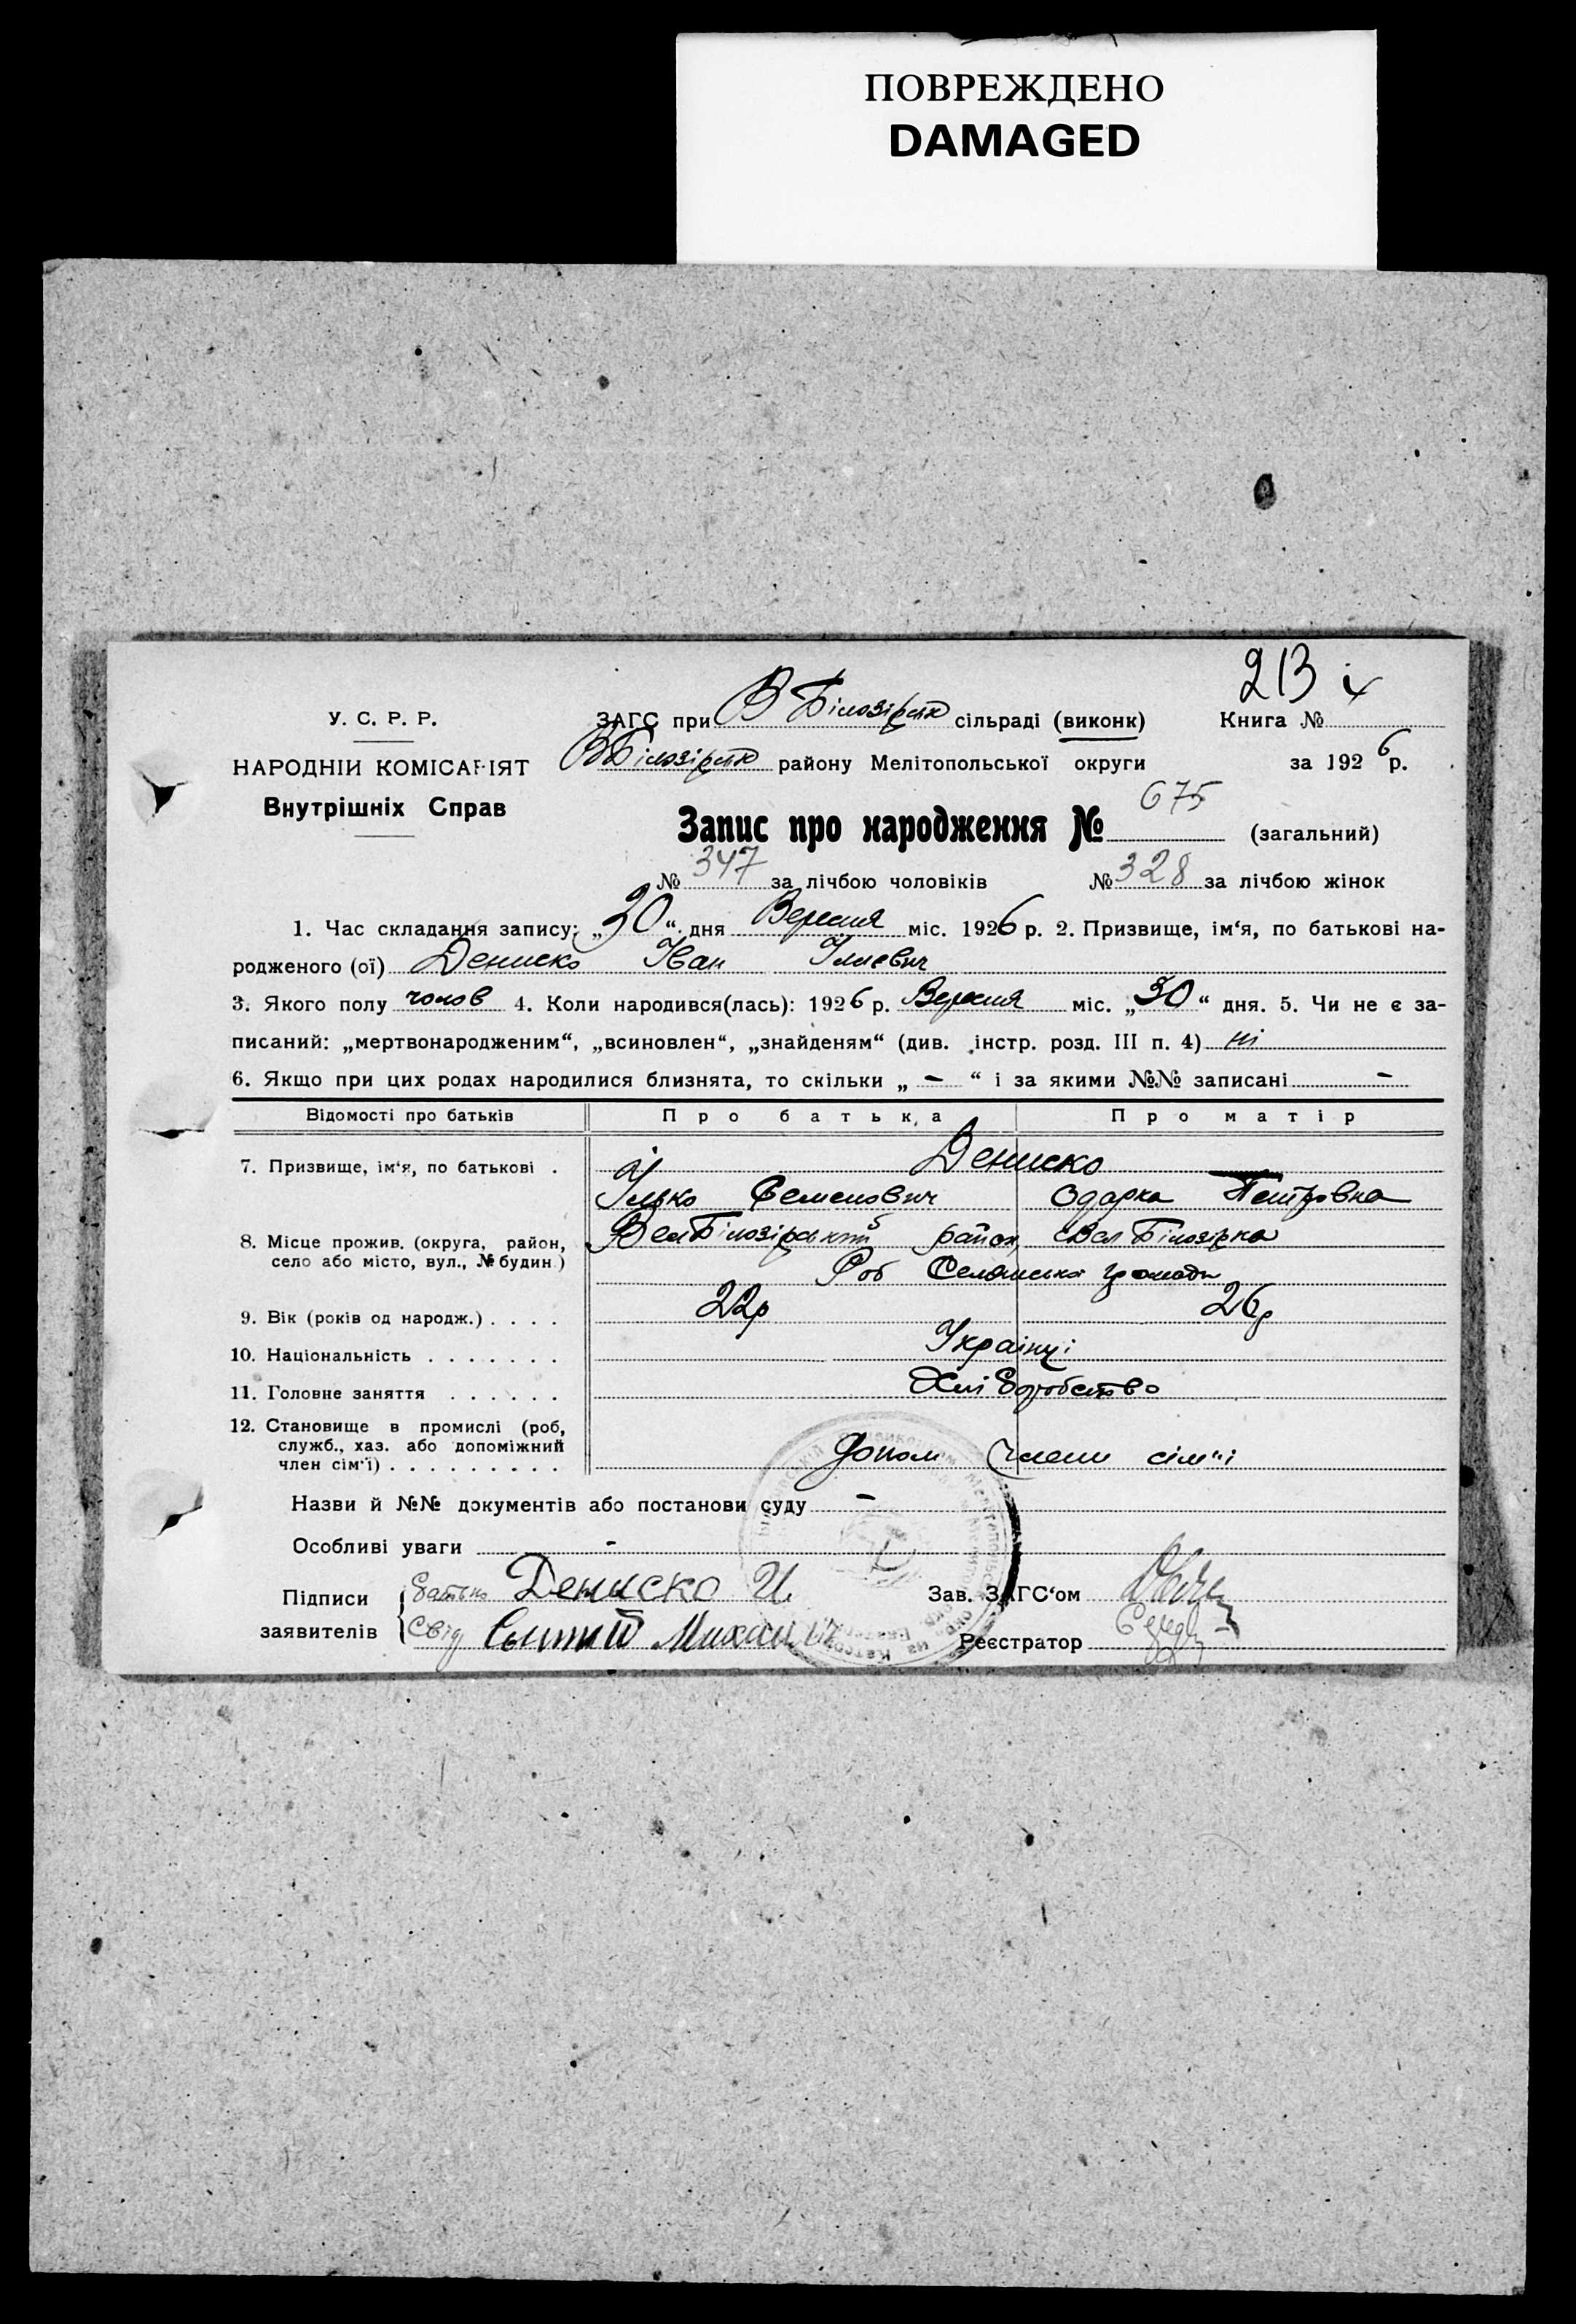 ПОВРЕЖДЕНО
DAMAGED
213
У. С. Р. Р.
ЗАГС при В Білозірск сільраді (виконк)
Книга №
НАРОДНІЙ КОМІСАРІЯТ
ВБілозірск району Мелітопольської округи
за 1926 р.
Внутрішніх Справ
Запис про народження № 675 (загальний)
№ 347 за лічбою чоловіків № 328 за лічбою жінок
1. Час складання запису: „30“ дня Вересня міс. 1926 р. 2. Призвище, ім‘я, по батькові на-
родженого (ої) Дениско Іван Ілиєвич
3. Якого полу чолов 4. Коли народився(лась): 1926 р. Вересня міс. „30“ дня. 5. Чи не є за-
писаний: „мертвонародженим“, „всиновлен“, „знайденям“ (див. інстр. розд. III п. 4) ні
6. Якщо при цих родах народилися близнята, то скільки „ – “ і за якими №№ записані –
Відомості про батьків Про батька Про матір
7. Призвище, ім‘я, по батькові . Дениско
Ілько Семенович Одарка Петровна
8. Місце прожив. (округа, район,
село або місто, вул., № будин.)
ВелБілозірський район, с Вел Білозірка
Селянська громади
9. Вік (років од народж.) . . . . 22р 26р
10. Національність . . . . . . . Українці
11. Головне заняття . . . . . . Хліборобство
12. Становище в промислі (роб,
служб., хаз. або допоміжний
член сім‘ї) . . . . . . . . . Допом Члени сім"ї
Назви й №№ документів або постанови суду –
Особливі уваги -
Підписи
заявителів
батько Дениско И.
Свід Михаил
Зав. ЗАГС‘ом
Реєстратор